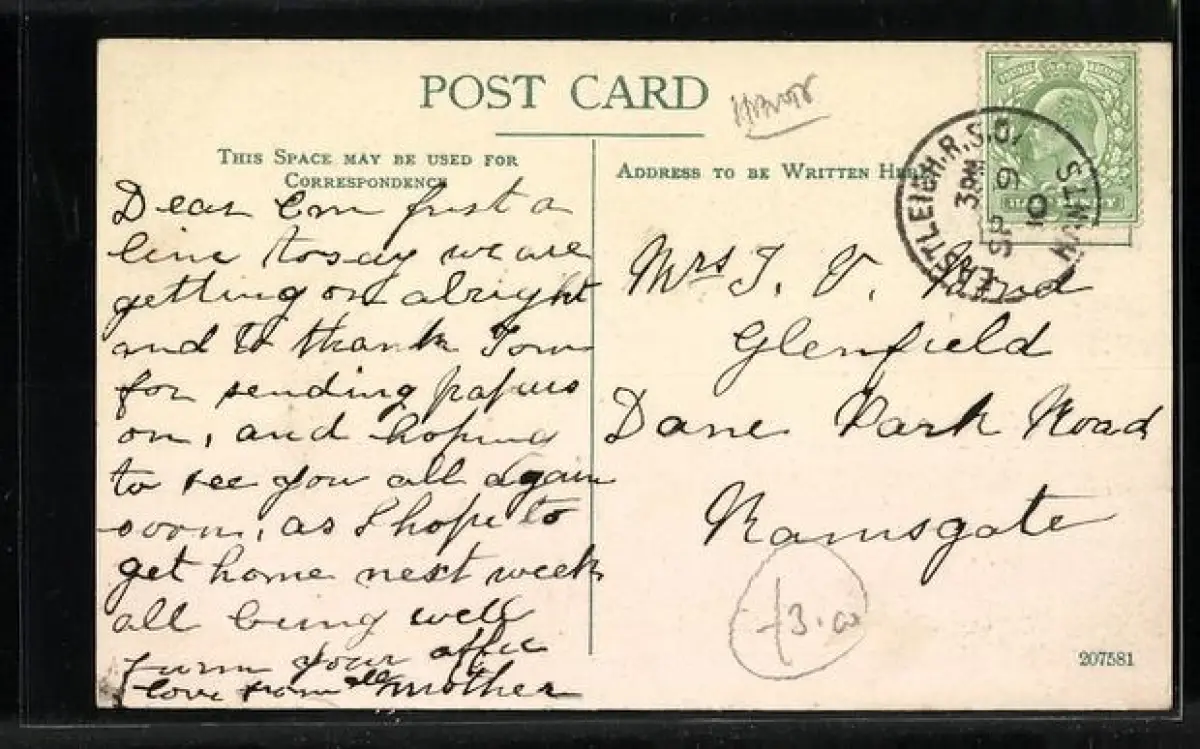 POST CARD
THIS SPACE MAY BE USED FOR
CORRESPONDENCE
ADDRESS TO BE WRITTEN HERE
EASTLEIGH.R.S.O.
3 PM
SP 9
10
HANTS
HALFPENNY
Dear Em just a
line to say we are
getting on alright
and to thank Tom
for sending papers
on, and hoping
to see you all again
soon, as I hope to
get home next week
all being well
from your affec
love from all mother
Mrs T. V.
Glenfield
Dane Park Road
Ramsgate
£3.00
207581